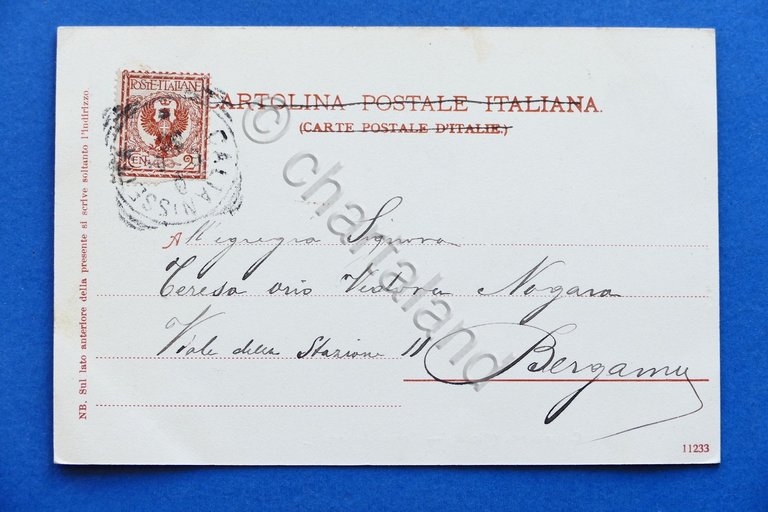 POSTE·ITALIANE
CENT. 2
CALTANISSETTA
CARTOLINA POSTALE ITALIANA.
(CARTE POSTALE D'ITALIE.)
NB. Sul lato anteriore della presente si scrive soltanto l'indirizzo
All'egregia Signora
Teresa Vedova Nogara
Viale della Stazione 11
Bergamo
11233
© chartaland